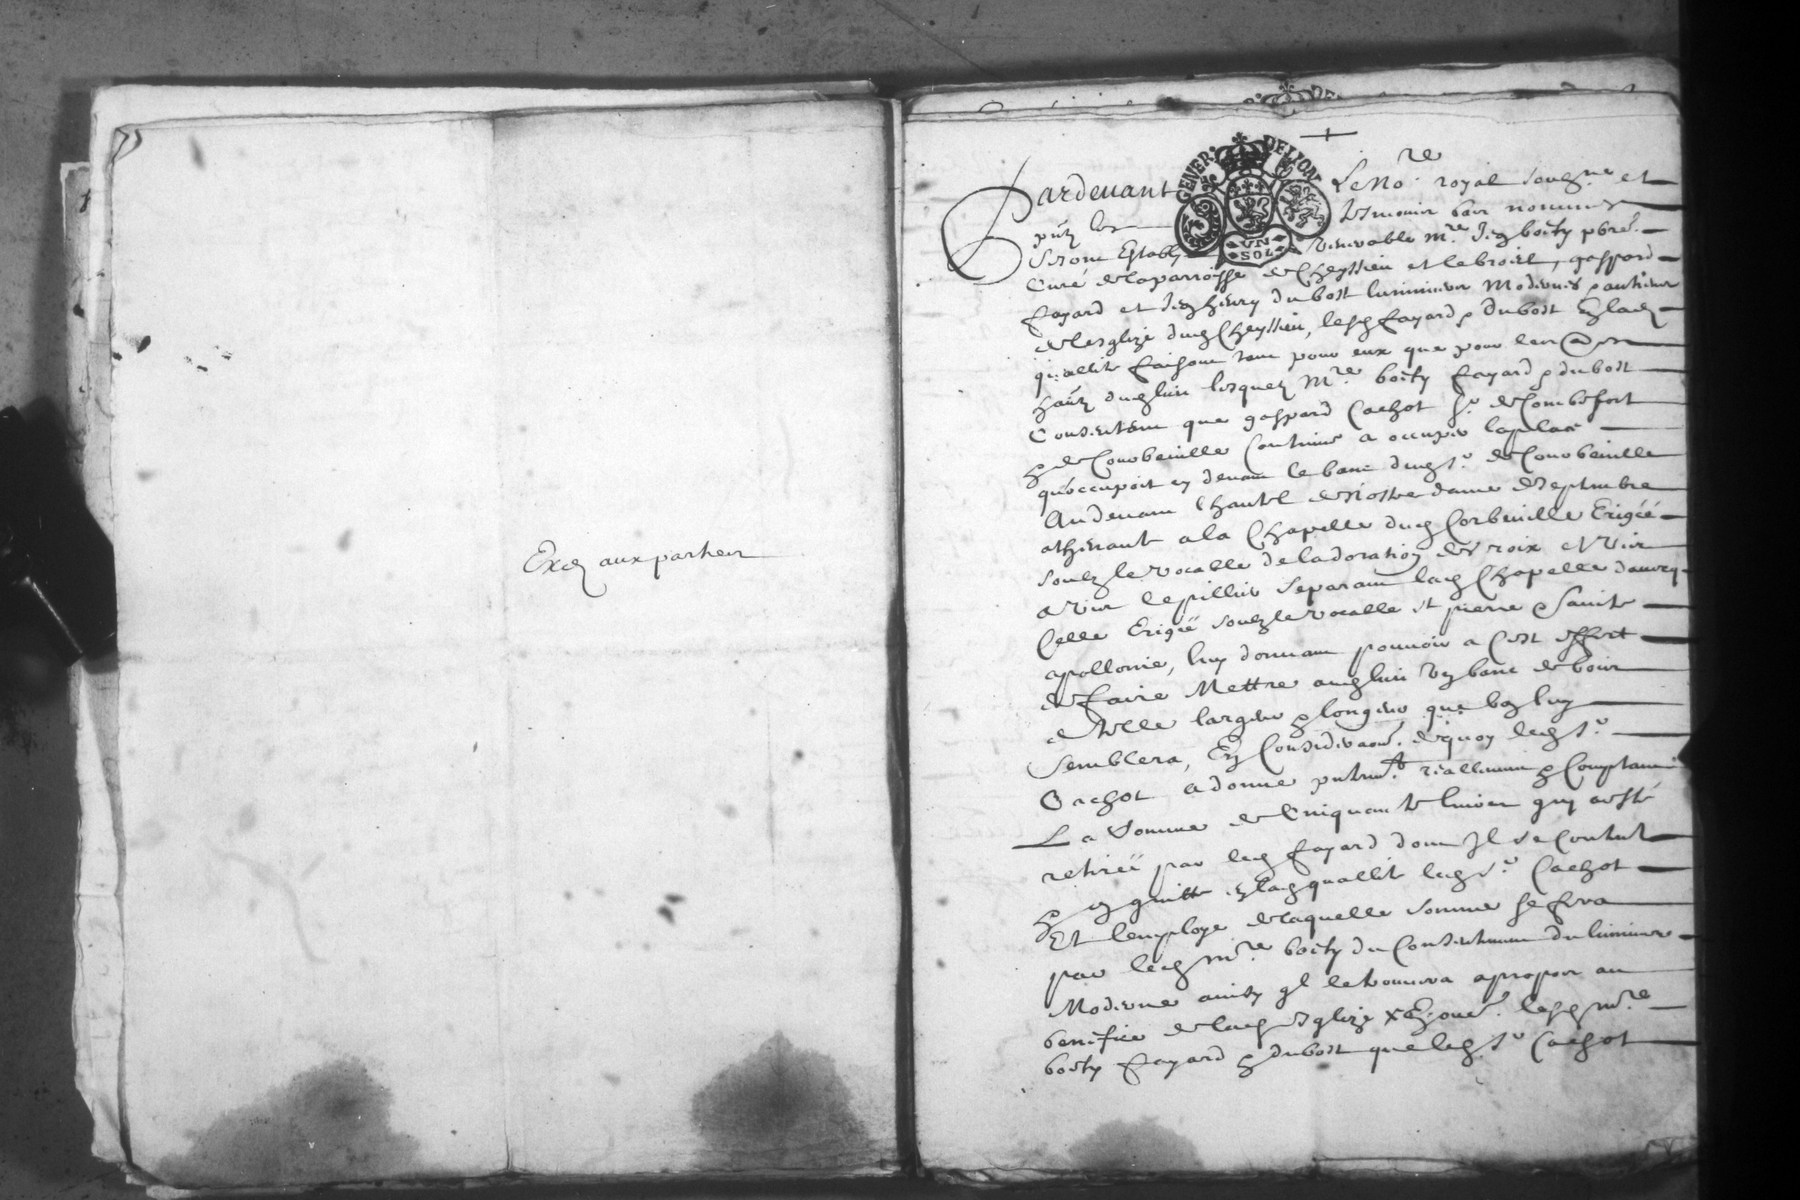 Exp aux parties
GENER. DE LION
UN
SOL
Pardevant Le No.re royal soubs.ne et
p.ntz les tesmoins bas nommes
Seront Establys venerable m.re Jeq boity pbre.
Curé de la parroisse de Cheyssieu et le broist, gaspard
fayard et Jeq henry du bost luminiers Modernes
de lesglize dud Cheyssieu, lesd fayard & dubost En lad
quallité faisant tant pour eux que pour les
hantz dud lieu lesquelz M.re boity fayard & dubost
Consentent que gaspard Cachot S.r de Combefort
& de Courbeville Continue a occuper la place
qu'occupoit cy devant le banc dud s.r de Courbeville
Au devant lhautel de Nostre dame de septembre
athenant a la Chapelle dud Corbeville Erigée
soubz le vocable de ladoration des roix et vis
a vis le pillier separant lad Chapelle davecq
Celle Erigée soubz le vocable st pierre & Sainte
apollonie, luy donnant pouvoir a Cest effect
de faire Mettre aud lieu ung banc de bois
de telle largeur & longueur que bon luy
semblera, En Consideraon. de quoy led s.r
Cachot a donné p.ntem.t reallement & Comptant
La somme de Cinquante livres quy a esté
retirée par led fayard dont Il se Contente
& en quitte en lad quallité led s.r Cachot
Et lemploye de laquelle somme se fera
par led m.re boity du Consentement du luminier
Moderne ainsy q'l le trouvera apropos au
benefice de lad Esglize lesd m.re
boity fayard & dubost que led s.r Cachot